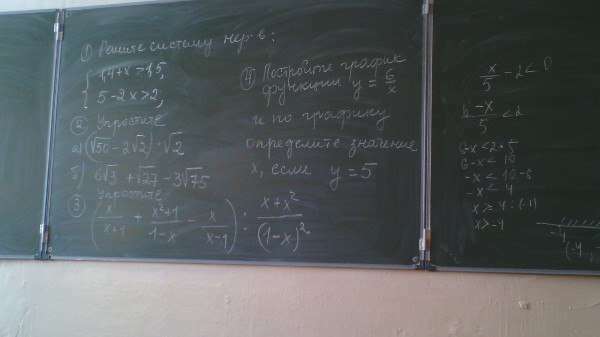 ① Решите систему нер-в:
{ 1,4+x>1,5,
5-2x>2,
② Упростите
а) (√50-2√2)·√2
б) 6√3+√27-3√75
Упростите
③ (x/(x+1) + (x²+1)/(1-x) - x/(x-1)) : (x+x²)/(1-x)²
④ Постройте график
функции y=6/x
и по графику
определите значение
x, если y=5
x/5 - 2 <
6-x/5 < 2
6-x<2·5
6-x<10
-x<10-6
-x<4
x>4:(-1)
x>-4
-4
(-4,